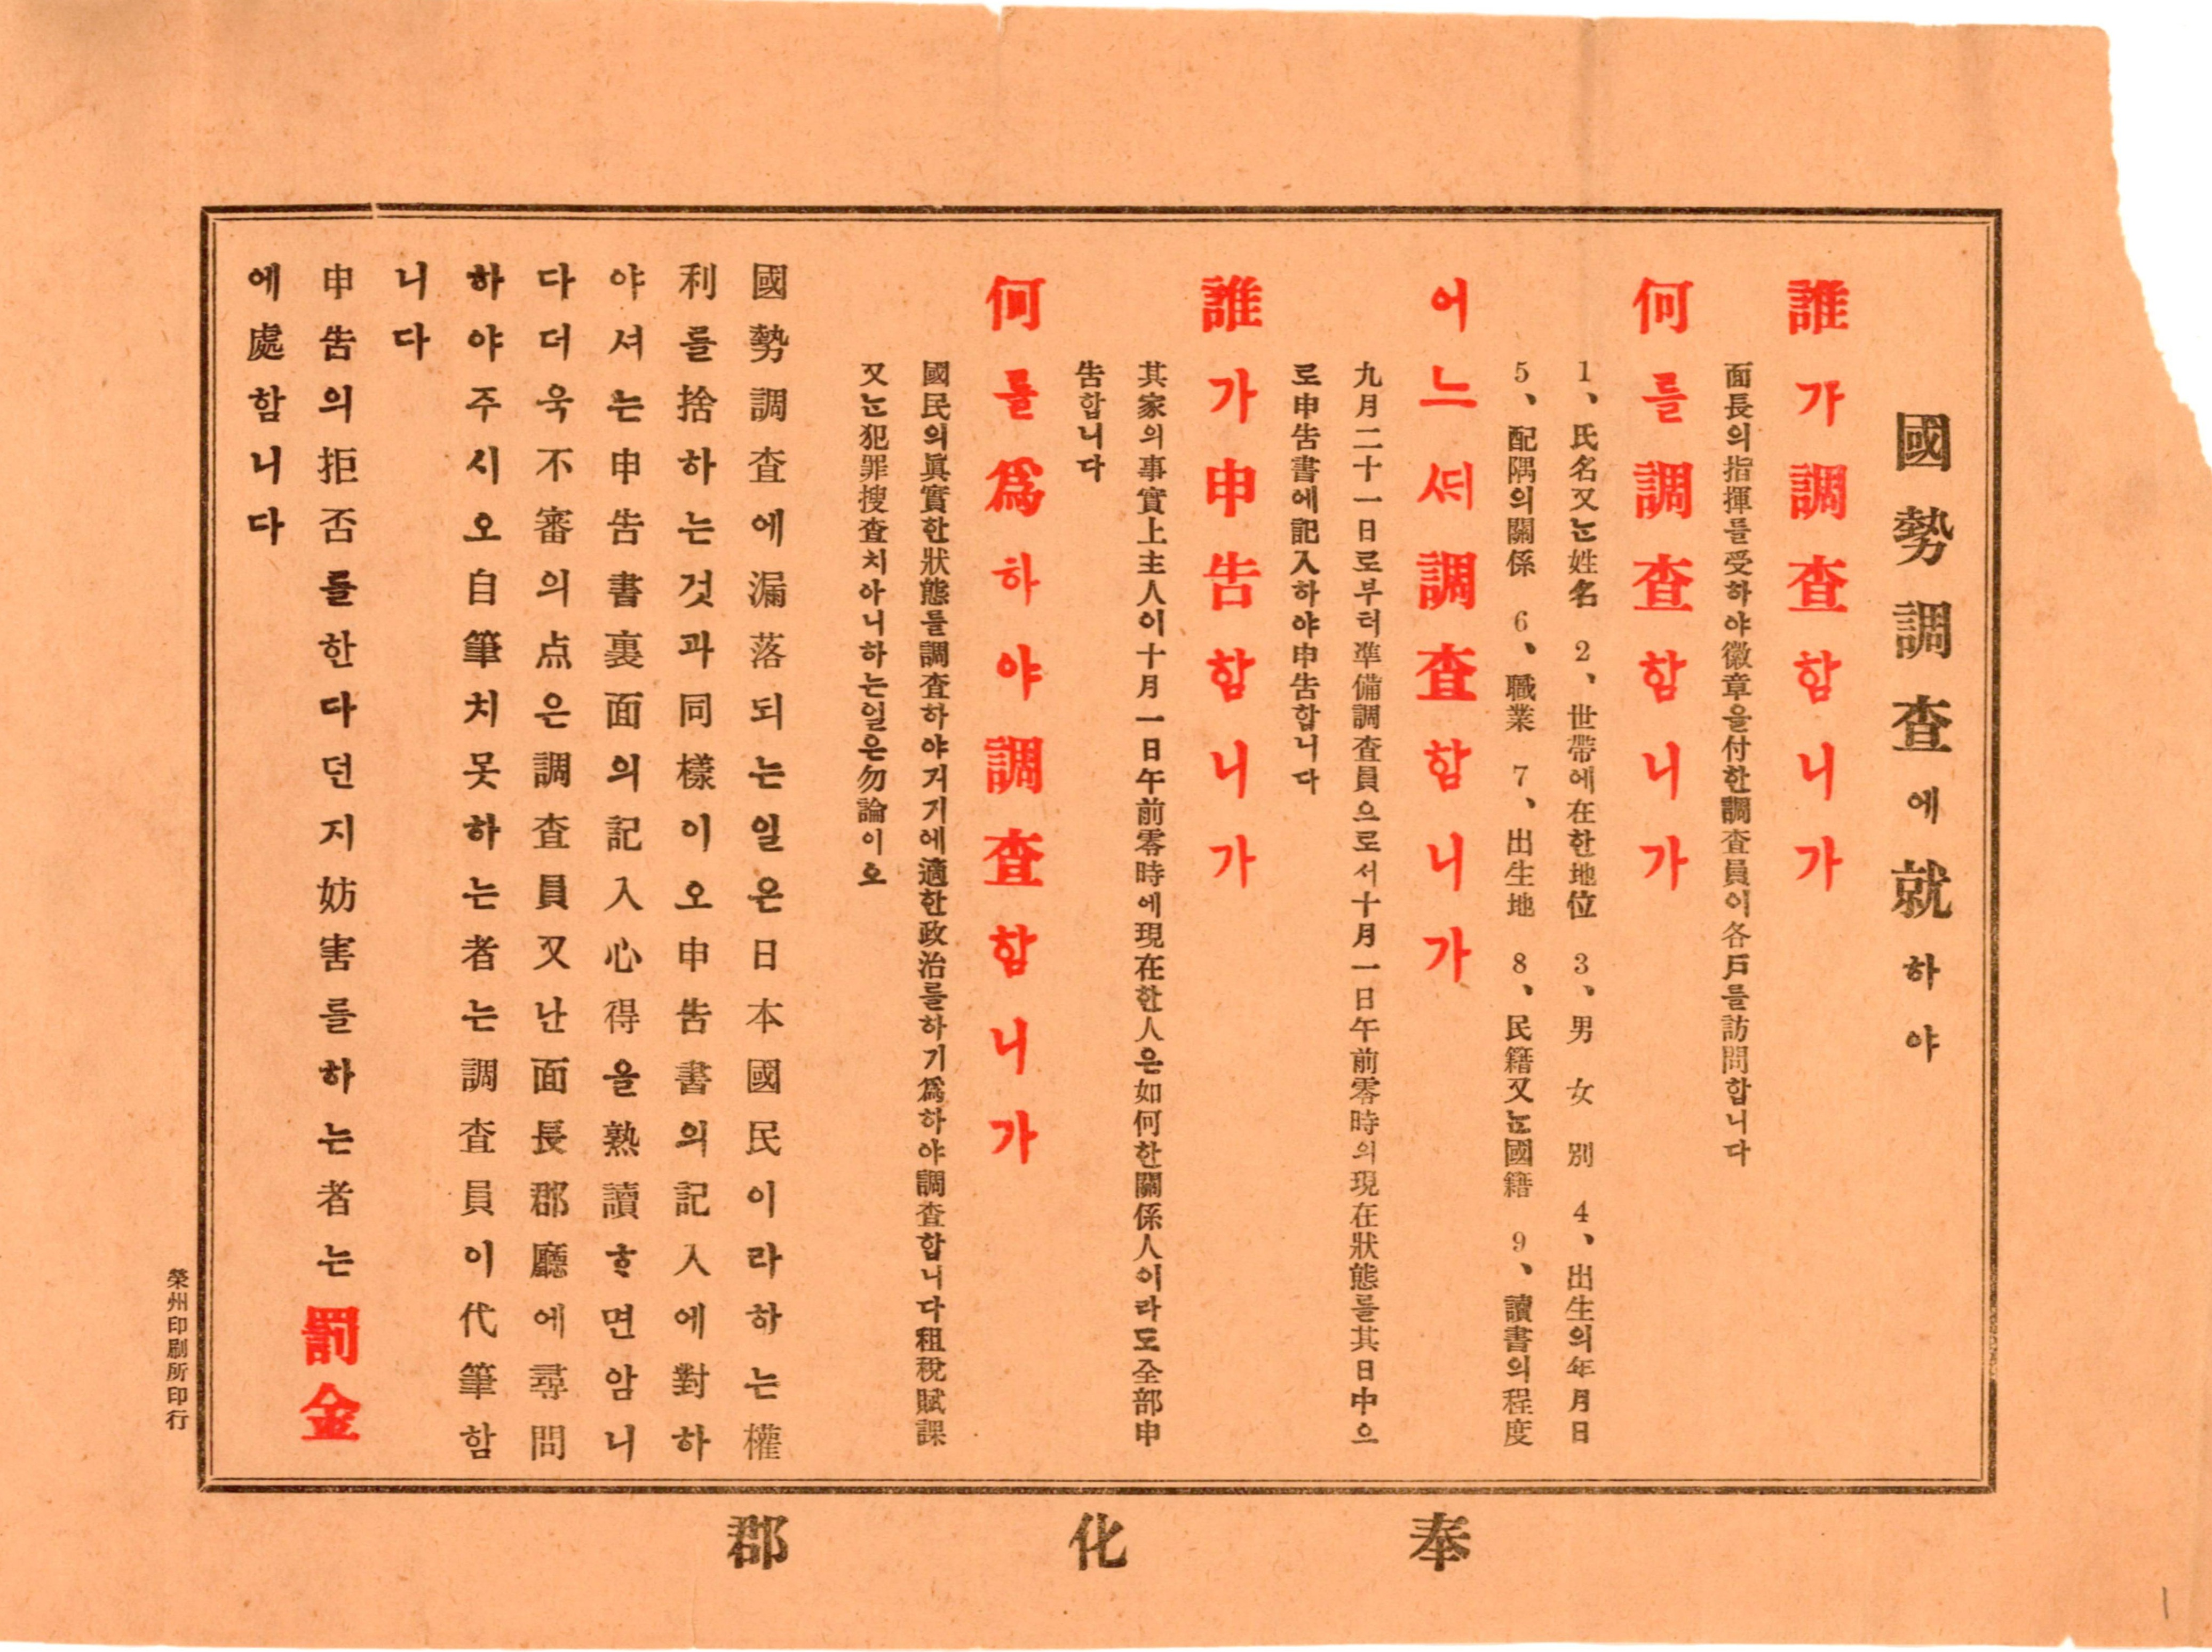 國勢調査에就하야
誰가調査함니가
面長의指揮를受하야徽章을付한調査員이各戶를訪問합니다
何를調査함니가
1、氏名又는姓名 2、世帶에在한地位 3、男女別 4、出生의年月日
5、配隅의關係 6、職業 7、出生地 8、民籍又는國籍 9、讀書의程度
어느ᄯᅢ調査함니가
九月二十一日로부터準備調査員으로서十月一日午前零時의現在狀態를其日中으
로申告書에記入하야申告합니다
誰가申告함니가
其家의事實上主人이十月一日午前零時에現在한人은如何한關係人이라도全部申
告합니다
何를爲하야調査함니가
國民의眞實한狀態를調査하야거기에適한政治를하기爲하야調査합니다租稅賦課
又는犯罪搜査치아니하는일은勿論이오
國勢調査에漏落되는일은日本國民이라하는權
利를捨하는것과同樣이오申告書의記入에對하
야셔는申告書裏面의記入心得을熟讀ᄒᆞ면암니
다더욱不審의点은調査員又난面長郡廳에尋問
하야주시오自筆치못하는者는調査員이代筆함
니다
申告의拒否를한다던지妨害를하는者는罰金
에處함니다
奉化郡
榮州印刷所印行